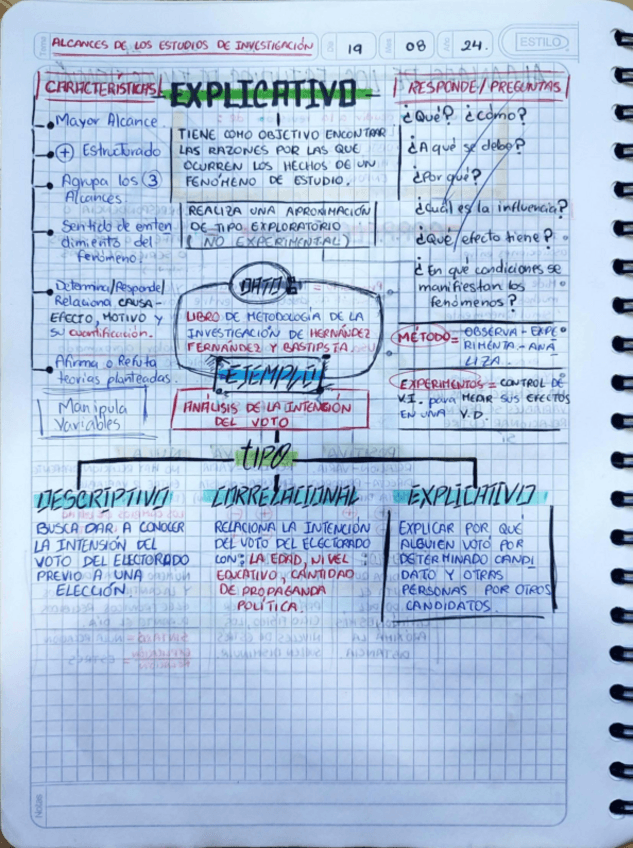 Tema
ALCANCES DE LOS ESTUDIOS DE INVESTIGACIÓN
Día
19
Mes
08
Año
24.
ESTILO
CARACTERÍSTICAS
• Mayor Alcance
• (+) Estructurado
• Agrupa los 3
Alcances.
• Sentido de enten
dimiento del
fenómeno.
• Determina/Responde/
Relaciona CAUSA-
EFECTO, MOTIVO y
su cuantificación.
• Afirma o Refuta
teorías planteadas.
Manipula
Variables
EXPLICATIVO
TIENE COMO OBJETIVO ENCONTRAR
LAS RAZONES POR LAS QUE
OCURREN LOS HECHOS DE UN
FENÓMENO DE ESTUDIO.
REALIZA UNA APROXIMACIÓN
DE TIPO EXPLORATORIO
(NO EXPERIMENTAL)
DATO
LIBRO DE METODOLOGÍA DE LA
INVESTIGACIÓN DE HERNÁNDEZ
FERNÁNDEZ Y BASTIPSTA.
EJEMPLO
ANÁLISIS DE LA INTENCIÓN
DEL VOTO
RESPONDE/PREGUNTAS
¿Qué? ¿cómo?
¿A qué se debe?
¿Por qué?
¿Cuál es la influencia?
¿Que efecto tiene?
¿En qué condiciones se
manifiestan los
fenómenos?
MÉTODO = OBSERVA-EXPE
RIMENTA-ANA
LIZA.
EXPERIMENTOS = CONTROL DE
V.I. para MEDIR SUS EFECTOS
EN UNA V.D.
TIPO
DESCRIPTIVO
BUSCA DAR A CONOCER
LA INTENSIÓN DEL
VOTO DEL ELECTORADO
PREVIO A UNA
ELECCIÓN.
CORRELACIONAL
RELACIONA LA INTENCIÓN
DEL VOTO DEL ELECTORADO
CON: LA EDAD, NIVEL
EDUCATIVO, CANTIDAD
DE PROPAGANDA
POLÍTICA.
EXPLICATIVO
EXPLICAR POR QUÉ
ALGUIEN VOTÓ POR
DETERMINADO CANDI
DATO Y OTRAS
PERSONAS POR OTROS
CANDIDATOS.
Notas